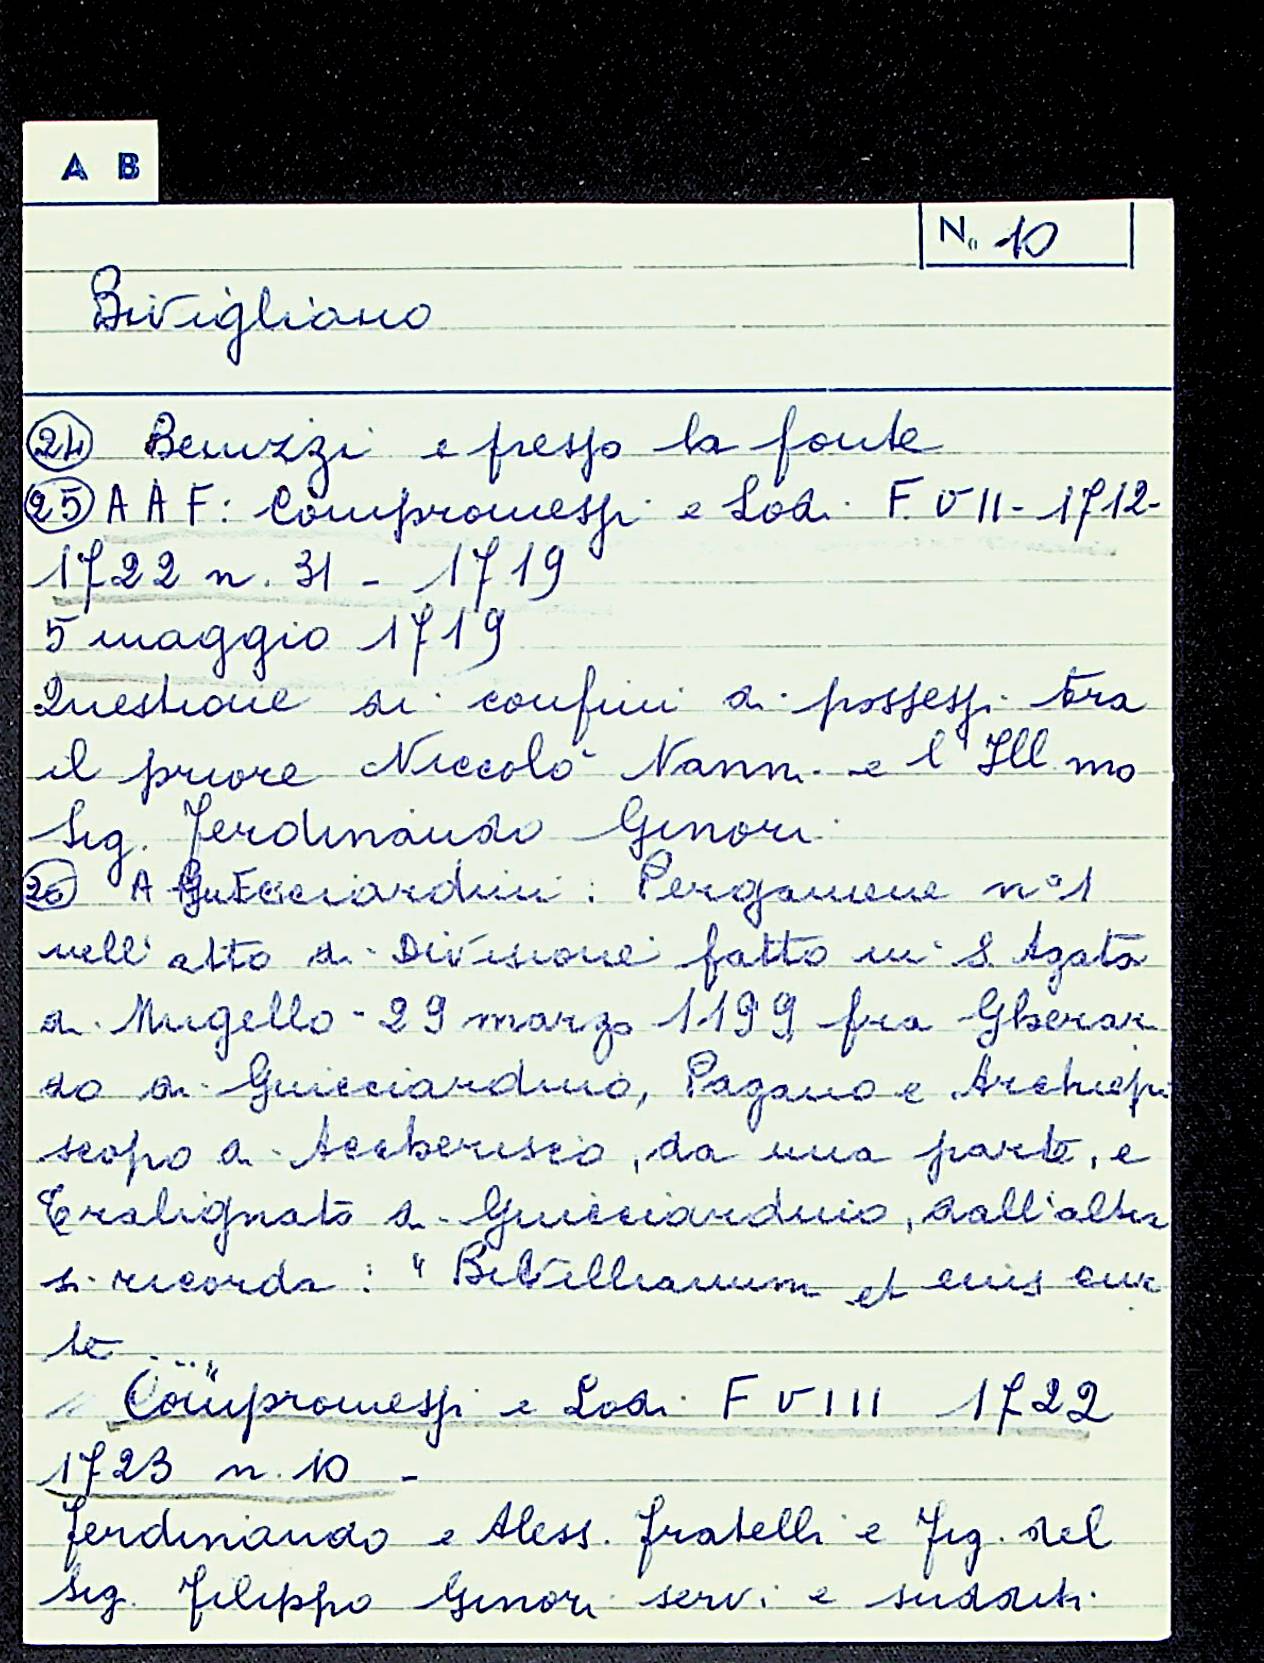 A B
N. 10
Bivigliano
24 Benuzzi e presso la fonte
25 A A F: Compromessi e Lodi F. VII - 1712-
1722 n. 31 - 1719
5 maggio 1719
Questione di confini di possessi tra
il priore Niccolò Nanni e l'Ill.mo
Sig. Ferdinando Ginori
26 A Guicciardini: Pergamene n° 1
nell'atto di Divisione fatto in S. Agata
di Mugello - 29 marzo 1199 fra Gherar
do di Guicciardino, Pagano e Archiepi
scopo di Accberiscio, da una parte, e
Tralignato di Guicciardino, dall'altra
si ricorda: "Bivillianum et eius cur
te ..."
Compromessi e Lodi F VIII 1722
1723 n. 10 -
Ferdinando e Aless. fratelli e Fig. del
Sig. Filippo Ginori servi e sudditi